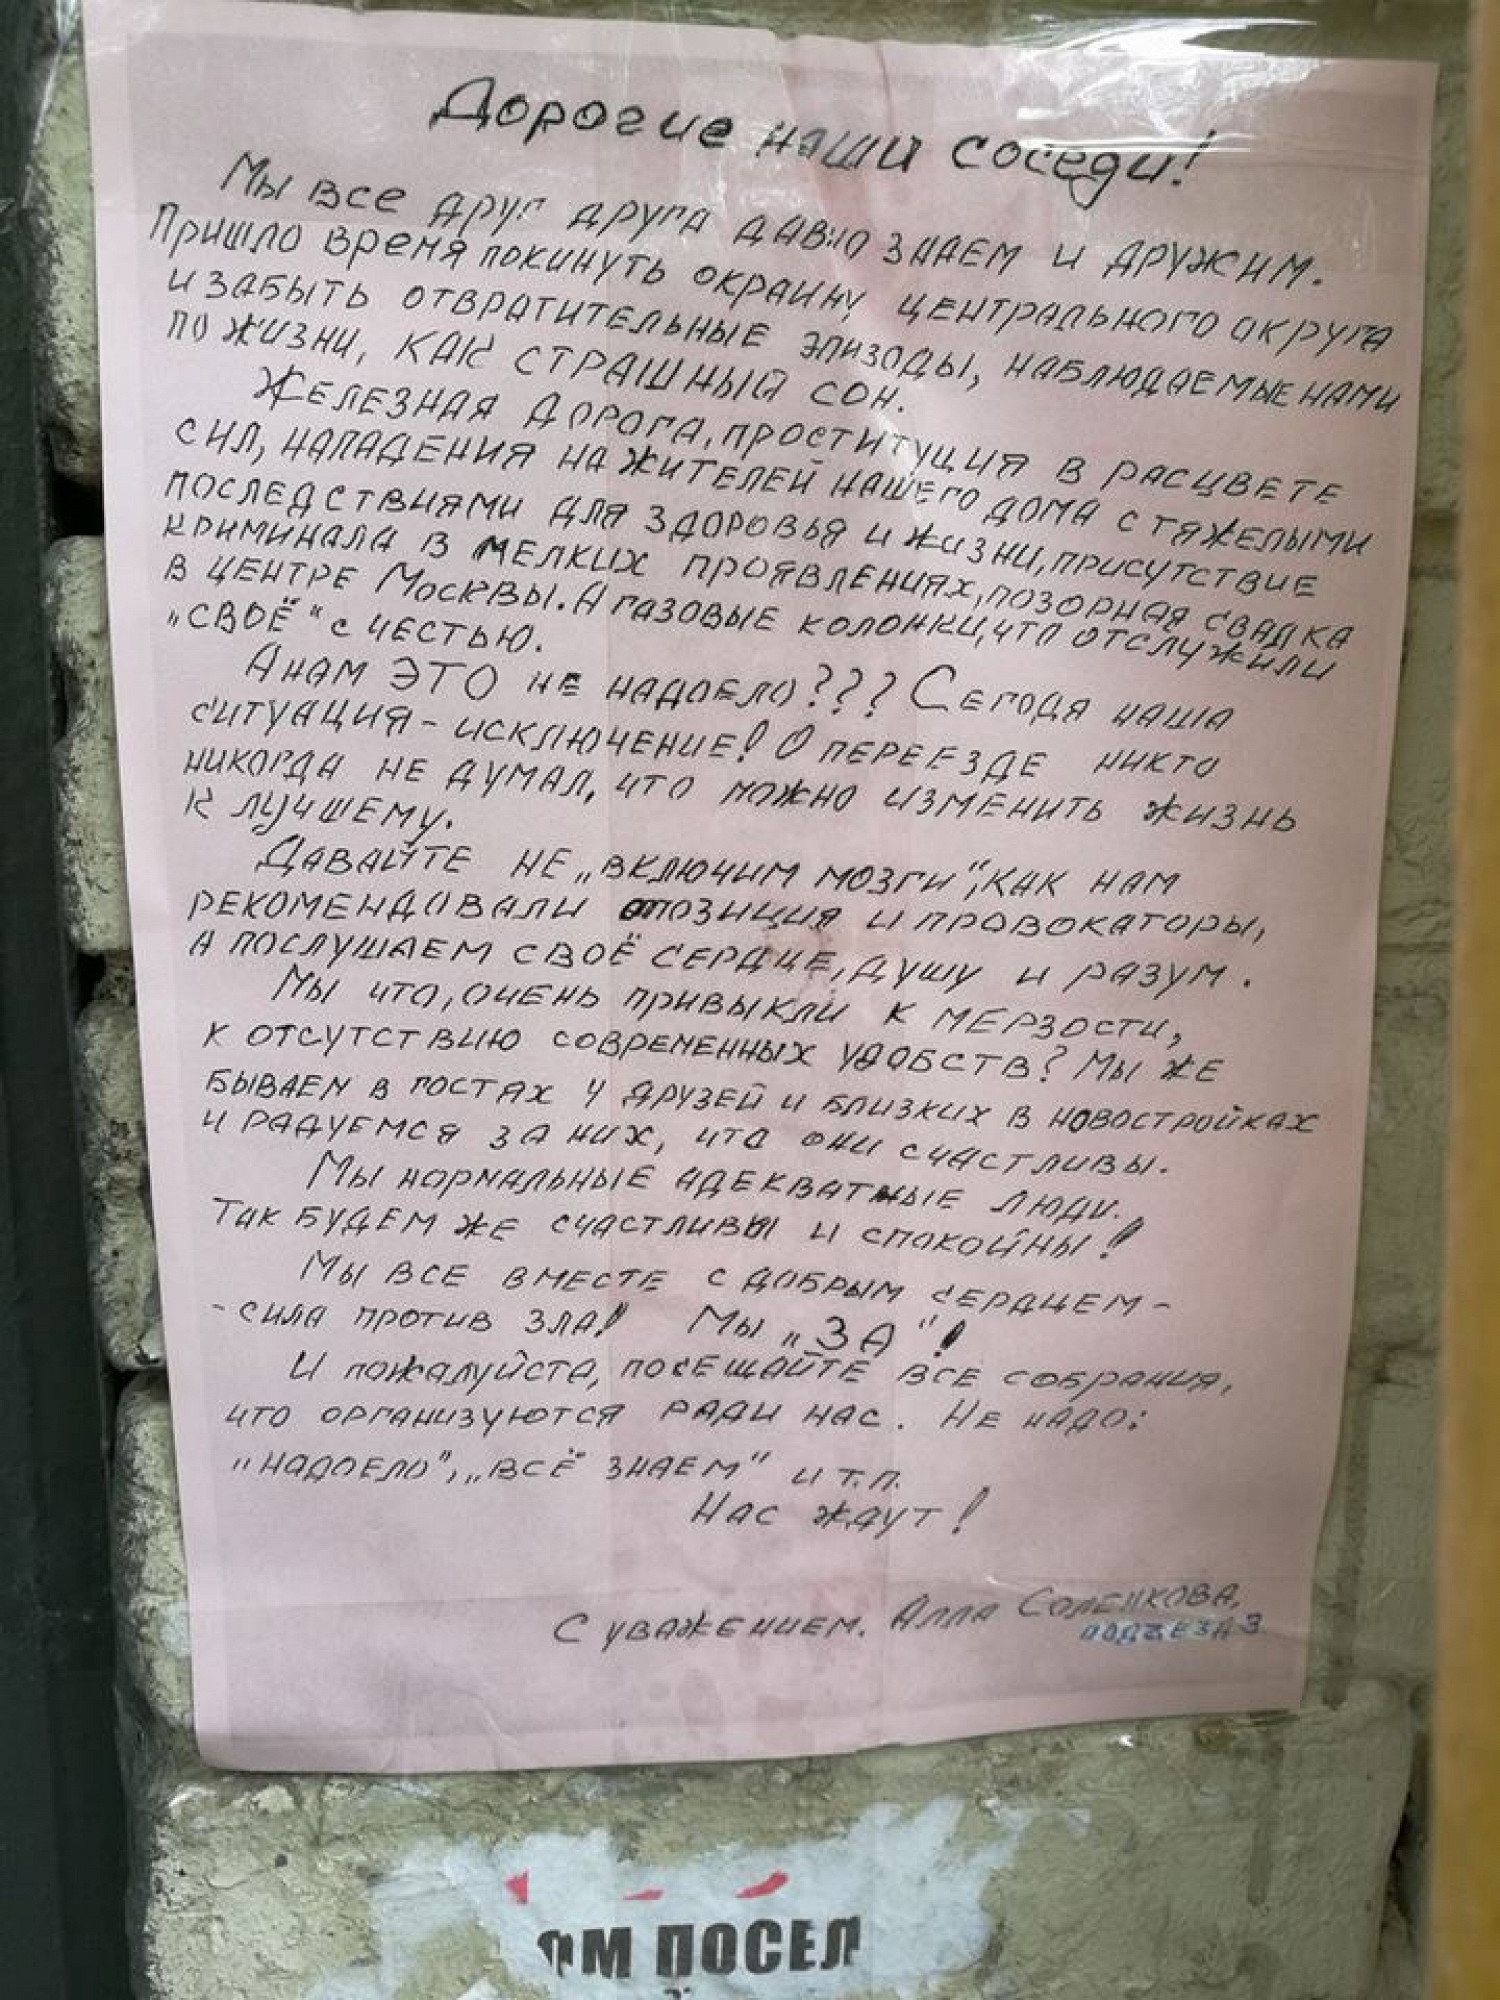 Дорогие наши соседи!
Мы все друг друга давно знаем и дружим.
Пришло время покинуть окраину центрального округа
и забыть отвратительные эпизоды, наблюдаемые нами
по жизни, как страшный сон.
Железная дорога, проституция в расцвете
сил, нападения на жителей нашего дома с тяжелыми
последствиями для здоровья и жизни, присутствие
криминала в мелких проявлениях, позорная свалка
в центре Москвы. А газовые колонки, что отслужили
„своё“ с честью.
А нам ЭТО не надоело??? Сегодня наша
ситуация - исключение! О переезде никто
никогда не думал, что можно изменить жизнь
к лучшему.
Давайте не „включим мозги“, как нам
рекомендовали опозиция и провокаторы,
а послушаем своё сердце, душу и разум.
Мы что, очень привыкли к мерзости,
к отсутствию современных удобств? Мы же
бываем в гостях у друзей и близких в новостройках
и радуемся за них, что они счастливы.
Мы нормальные адекватные люди.
Так будем же счастливы и спокойны!
Мы все вместе с добрым сердцем -
- сила против зла! Мы „ЗА“!
И пожалуйста, посещайте все собрания,
что организуются ради нас. Не надо:
„надоело“, „всё знаем“ и т.п.
Нас ждут!
С уважением. Алла Соленкова,
подъезд 3
ОМ ПОСЕЛ